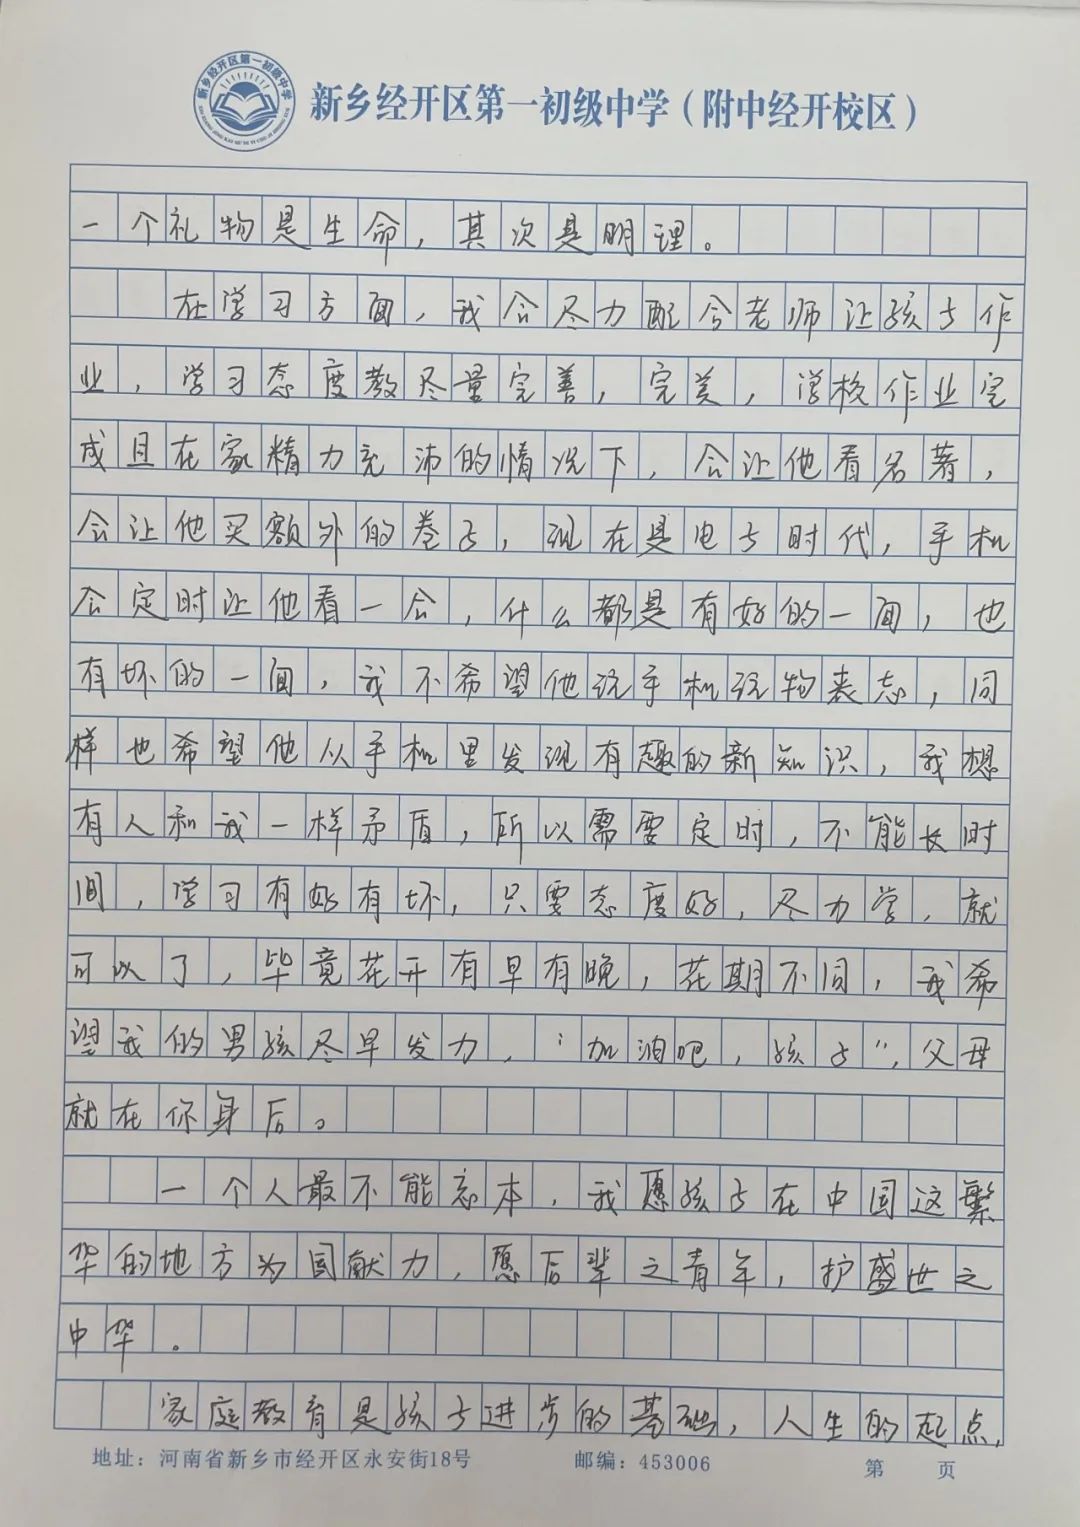 新乡经开区第一初级中学
新乡经开区第一初级中学（附中经开校区）
一个礼物是生命，其次是明理。
在学习方面，我会尽力配合老师让孩子作
业，学习态度教尽量完善，完美，学校作业完
成且在家精力充沛的情况下，会让他看名著，
会让他买额外的卷子，现在是电子时代，手机
会定时让他看一会，什么都是有好的一面，也
有坏的一面，我不希望他玩手机玩物丧志，同
样也希望他从手机里发现有趣的新知识，我想
有人和我一样矛盾，所以需要定时，不能长时
间，学习有好有坏，只要态度好，尽力学，就
可以了，毕竟花开有早有晚，花期不同，我希
望我的男孩尽早发力，“加油吧，孩子”，父母
就在你身后。
一个人最不能忘本，我愿孩子在中国这繁
华的地方为国献力，愿后辈之青年，护盛世之
中华。
家庭教育是孩子进步的基础，人生的起点，
地址：河南省新乡市经开区永安街18号 邮编：453006 第 页